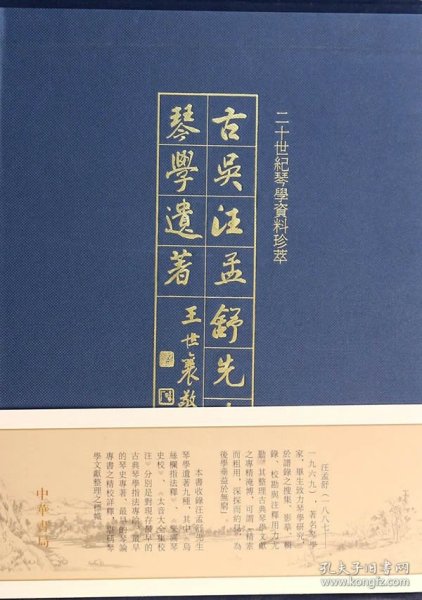 二十世紀琴學資料珍萃
古吳汪孟舒先
琴學遺著
王世襄敬
汪孟舒(一八八七—
一九六九),著名琴學
家,畢生致力琴學研究,
於譜錄之搜集、影摹、輯
錄、校勘與注釋用力尤
勤。其整理古典琴學文獻
之專精淹博,可謂“精索
而粗用,深探而約發,為
後學垂益於無窮”。
本書收錄汪孟舒先生
琴學遺著九種,其中《烏
絲欄指法釋》、《樂圃琴
史校》、《太音大全集校
注》分別是對現存最早的
古典琴學指法專論、最早
的琴史專著、最早的琴論
專書之精校詳釋,堪稱琴
學文獻整理之標範。
中華書局
孔夫子旧书网
www.kongfz.com